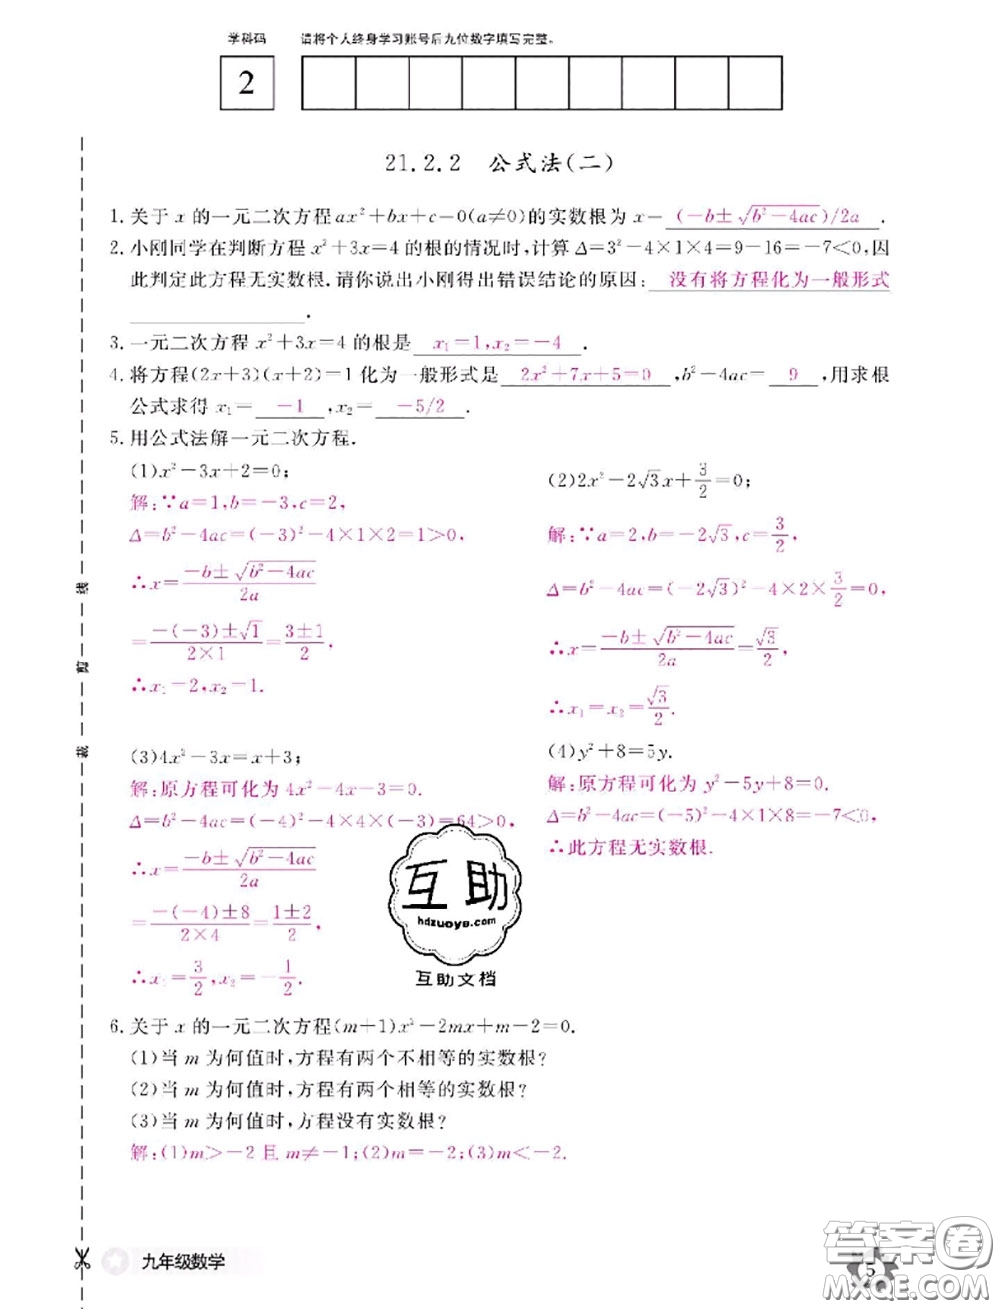 学科码 请将个人终身学习账号后九位数字填写完整。
2
21.2.2 公式法(二)
1.关于 x 的一元二次方程ax²+bx+c=0(a≠0)的实数根为 x= (-b±√(b²-4ac))/2a .
2.小刚同学在判断方程 x²+3x=4 的根的情况时,计算 Δ=3²-4×1×4=9-16=-7<0,因
此判定此方程无实数根.请你说出小刚得出错误结论的原因: 没有将方程化为一般形式
.
3.一元二次方程 x²+3x=4 的根是 x₁=1,x₂=-4 .
4.将方程(2x+3)(x+2)=1化为一般形式是 2x²+7x+5=0 ,b²-4ac= 9 ,用求根
公式求得 x₁= -1 ,x₂= -5/2 .
5.用公式法解一元二次方程.
(1)x²-3x+2=0;
解:∵a=1,b=-3,c=2,
Δ=b²-4ac=(-3)²-4×1×2=1>0,
∴x=(-b±√(b²-4ac))/2a
=(-(-3)±√1)/(2×1)=(3±1)/2,
∴x₁=2,x₂=1.
(2)2x²-2√3x+3/2=0;
解:∵a=2,b=-2√3,c=3/2,
Δ=b²-4ac=(-2√3)²-4×2×3/2=0,
∴x=(-b±√(b²-4ac))/2a=√3/2,
∴x₁=x₂=√3/2.
(3)4x²-3x=x+3;
解:原方程可化为 4x²-4x-3=0.
Δ=b²-4ac=(-4)²-4×4×(-3)=64>0,
∴x=(-b±√(b²-4ac))/2a
=(-(-4)±8)/(2×4)=(1±2)/2,
∴x₁=3/2,x₂=-1/2.
(4)y²+8=5y.
解:原方程可化为 y²-5y+8=0.
Δ=b²-4ac=(-5)²-4×1×8=-7<0
∴此方程无实数根.
互助
hdzuoye.com
互助文档
6.关于 x 的一元二次方程(m+1)x²-2mx+m-2=0.
(1)当 m 为何值时,方程有两个不相等的实数根?
(2)当 m 为何值时,方程有两个相等的实数根?
(3)当 m 为何值时,方程没有实数根?
解:(1)m>-2 且 m≠-1;(2)m=-2;(3)m<-2.
裁 剪 线
九年级数学
5
答案圈
MXQE.COM